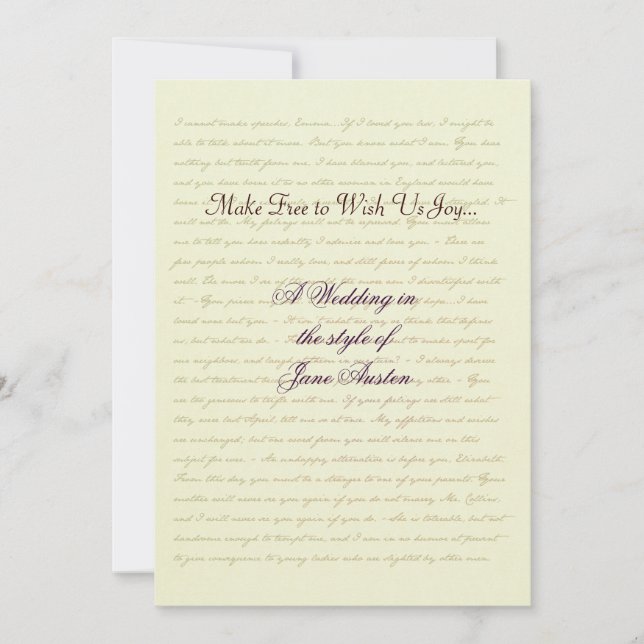 I cannot make speeches, Emma...If I loved you less, I might be
able to talk about it more. But you know what I am. You hear
nothing but truth from me. I have blamed you, and lectured you,
and you have borne it as no other woman in England would have
borne it.
Make Free to Wish Us Joy...
will not do. My feelings will not be repressed. You must allow
me to tell you how ardently I admire and love you. - There are
few people whom I really love, and still fewer of whom I think
well. The more I see of the world, the more am I dissatisfied with
it. - You pierce my hope...I have
A Wedding in
loved none but you. - It isn't what we say or think that defines
us, but what we do. - but to make sport for
the style of
our neighbors, and laugh at them in our turn? - I always deserve
the best treatment other. - You
Jane Austen
are too generous to trifle with me. If your feelings are still what
they were last April, tell me so at once. My affections and wishes
are unchanged; but one word from you will silence me on this
subject for ever. - An unhappy alternative is before you, Elizabeth.
From this day you must be a stranger to one of your parents. Your
mother will never see you again if you do not marry Mr. Collins,
and I will never see you again if you do. - She is tolerable, but not
handsome enough to tempt me, and I am in no humor at present
to give consequence to young ladies who are slighted by other men.